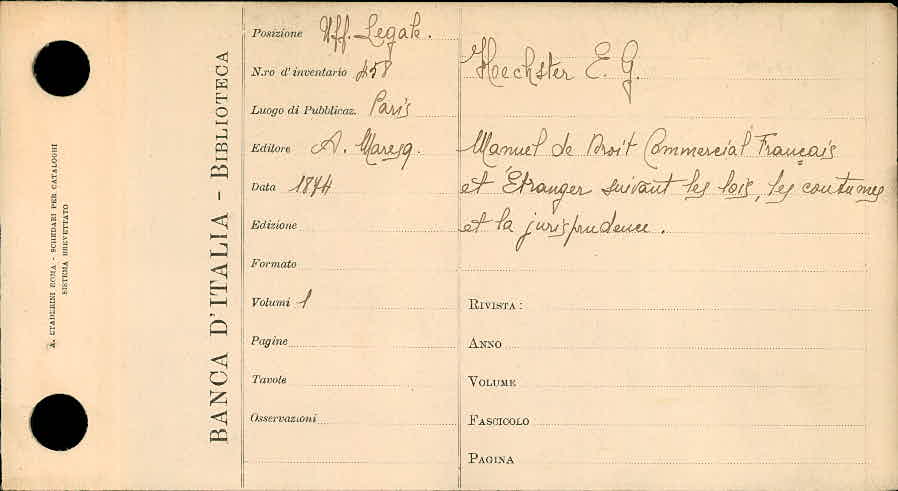 A. STADERINI ROMA - SCHEDARI PER CATALOGHI
SISTEMA BREVETTATO
BANCA D'ITALIA - BIBLIOTECA
Posizione Uff. Legale.
N.ro d'inventario 458
Luogo di Pubblicaz. Paris
Editore A. Maresq.
Data 1874
Edizione
Formato
Volumi 1
Pagine
Tavole
Osservazioni
Hoechster E. G.
Manuel de Droit Commercial Français
et Étranger suivant les lois, les coutumes
et la jurisprudence.
RIVISTA:
ANNO
VOLUME
FASCICOLO
PAGINA